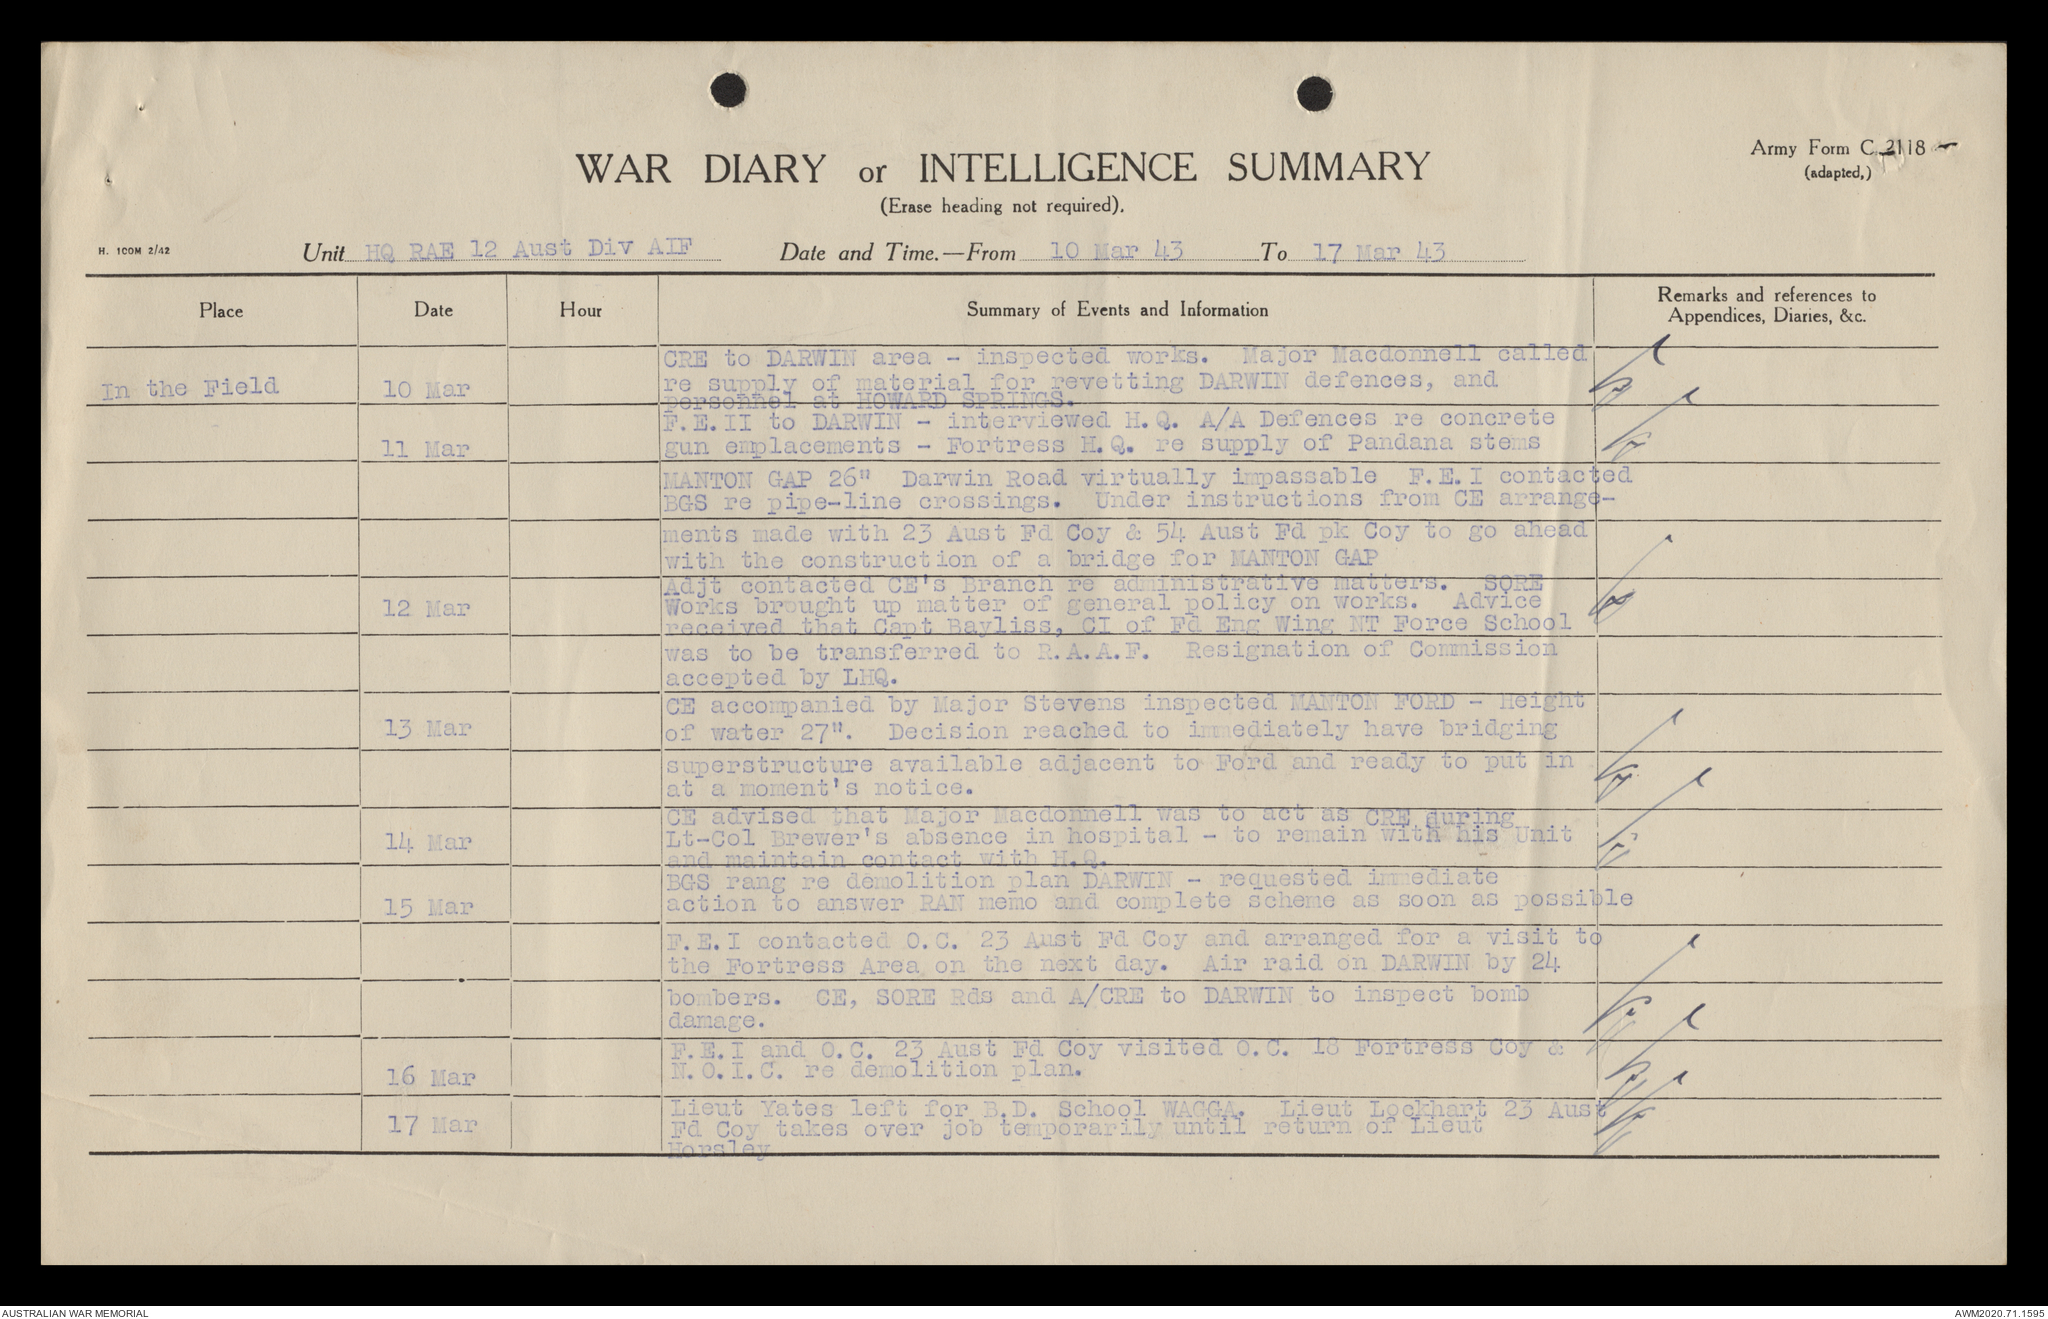 WAR DIARY or INTELLIGENCE SUMMARY
(Erase heading not required).
Army Form C 2118
(adapted,)
H. 100M 2/42
Unit HQ RAE 12 Aust Div AIF Date and Time.—From 10 Mar 43 To 17 Mar 43
Place Date Hour Summary of Events and Information Remarks and references to
Appendices, Diaries, &c.
CRE to DARWIN area - inspected works. Major Macdonnell called
In the Field 10 Mar re supply of material for revetting DARWIN defences, and
personnel at HOWARD SPRINGS.
F.E.II to DARWIN - interviewed H.Q. A/A Defences re concrete
11 Mar gun emplacements - Fortress H.Q. re supply of Pandana stems
MANTON GAP 26" Darwin Road virtually impassable F.E.I contacted
BGS re pipe-line crossings. Under instructions from CE arrange-
ments made with 23 Aust Fd Coy & 54 Aust Fd pk Coy to go ahead
with the construction of a bridge for MANTON GAP
Adjt contacted CE's Branch re administrative matters. SORE
12 Mar Works brought up matter of general policy on works. Advice
received that Capt Bayliss, CI of Fd Eng Wing NT Force School
was to be transferred to R.A.A.F. Resignation of Commission
accepted by LHQ.
CE accompanied by Major Stevens inspected MANTON FORD - Height
13 Mar of water 27". Decision reached to immediately have bridging
superstructure available adjacent to Ford and ready to put in
at a moment's notice.
CE advised that Major Macdonnell was to act as CRE during
14 Mar Lt-Col Brewer's absence in hospital - to remain with his Unit
and maintain contact with H.Q.
BGS rang re demolition plan DARWIN - requested immediate
15 Mar action to answer RAN memo and complete scheme as soon as possible
F.E.I contacted O.C. 23 Aust Fd Coy and arranged for a visit to
the Fortress Area on the next day. Air raid on DARWIN by 24
bombers. CE, SORE Rds and A/CRE to DARWIN to inspect bomb
damage.
F.E.I and O.C. 23 Aust Fd Coy visited O.C. 18 Fortress Coy &
16 Mar N.O.I.C. re demolition plan.
Lieut Yates left for B.D. School WAGGA. Lieut Lockhart 23 Aust
17 Mar Fd Coy takes over job temporarily until return of Lieut
Horsley
AUSTRALIAN WAR MEMORIAL AWM2020.71.1595